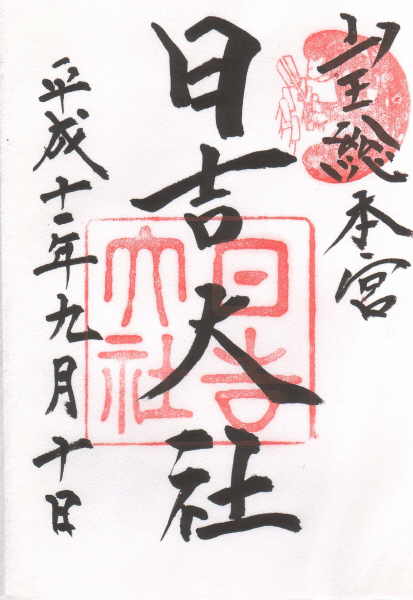 山王総本宮
日吉大社
平成十二年九月十日
日吉
大社